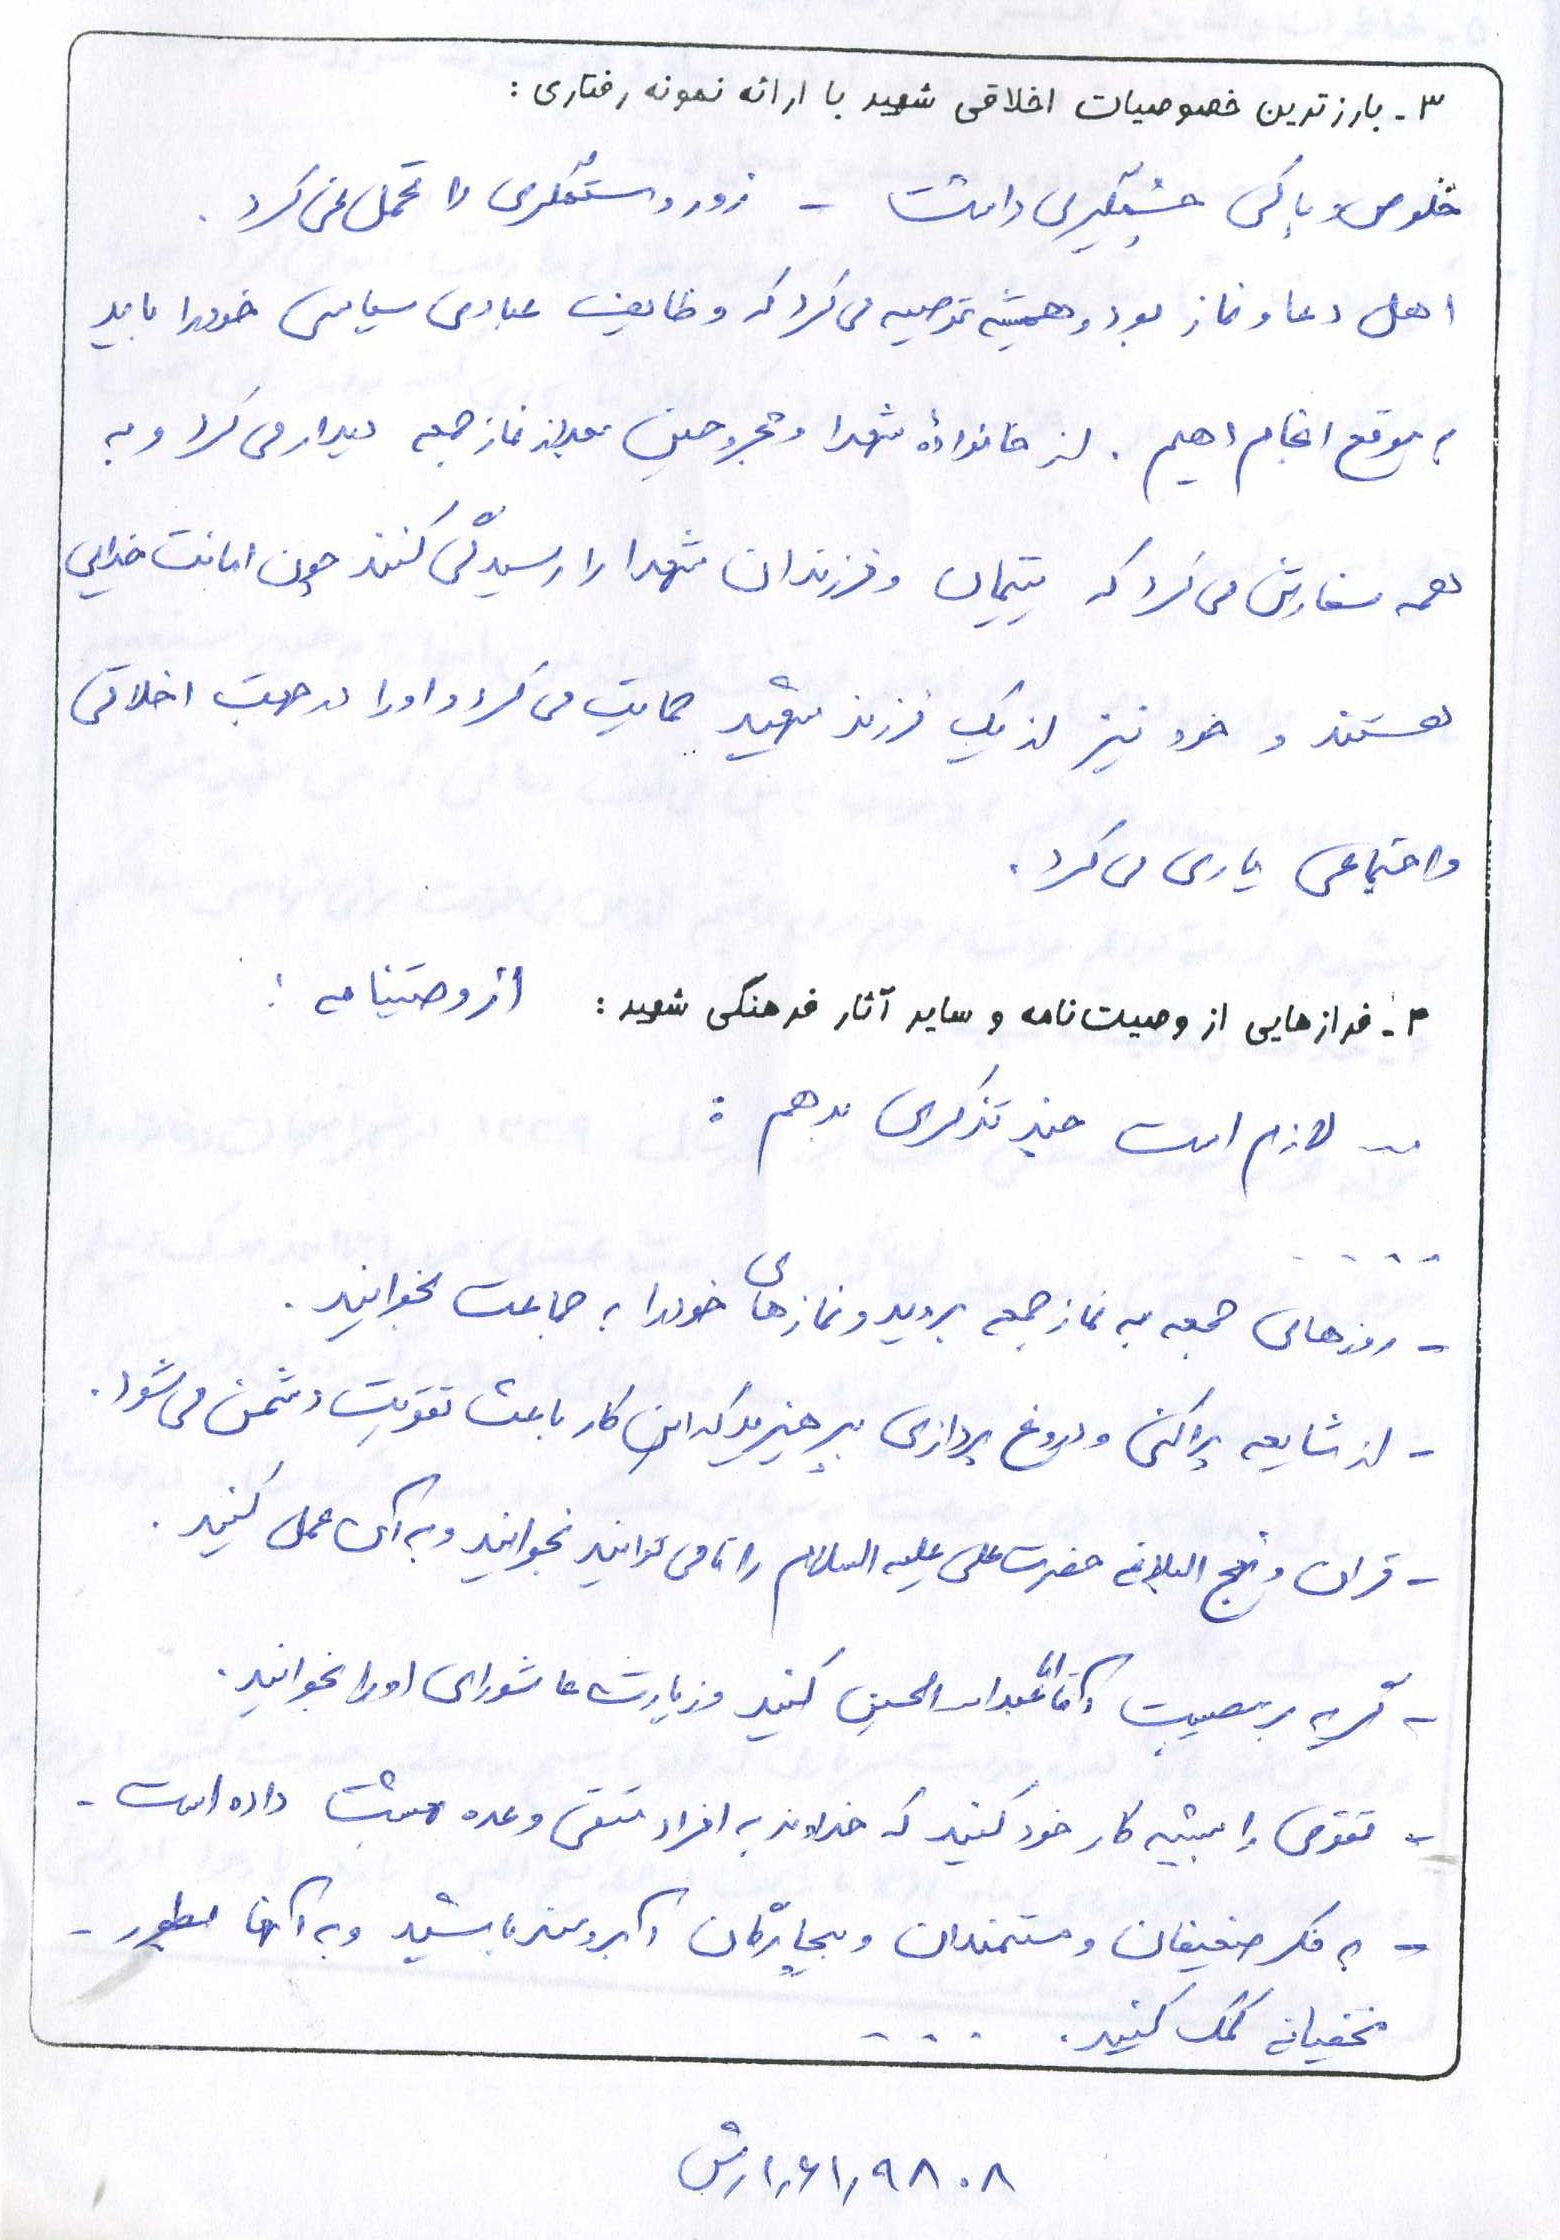 ۳- بارزترین خصوصیات اخلاقی شهید با ارائه نمونه رفتاری:
خلوص و پاکی چشمگیری داشت - زور و ستمگری را تحمل نمی کرد.
اهل دعا و نماز بود و همیشه توصیه می کرد که وظایف عبادی سیاسی خود را باید
به موقع انجام دهیم. از خانوادهٔ شهدا و مجروحین بعد از نماز جمعه دیدار می کرد و به
همه سفارش می کرد که یتیمان و فرزندان شهدا را رسیدگی کنند چون امانت خدایی
هستند و خود نیز از یک فرزند شهید حمایت می کرد و او را در جهت اخلاقی
و اجتماعی یاری می کرد.
۴- فرازهایی از وصیت‌نامه و سایر آثار فرهنگی شهید: از وصیتنامه:
... لازم است چند تذکری بدهم:
.....
- روزهای جمعه به نماز جمعه بروید و نمازهای خود را به جماعت بخوانید.
- از شایعه پراکنی و دروغ پردازی بپرهیزید که این کار باعث تقویت دشمن می شود.
- قران و نهج البلاغه حضرت علی علیه السلام را تا می توانید بخوانید و به آن عمل کنید.
- گریه بر مصیبت آقا اباعبدالله الحسین کنید و زیارت عاشورای او را بخوانید.
- تقوی را پیشه کار خود کنید که خداوند به افراد متقی وعده بهشت داده است -
- به فکر ضعیفان و مستمندان و بیچارگان آبرومند باشید و به آنها بطور -
مخفیانه کمک کنید. ...
۹۸۰۸